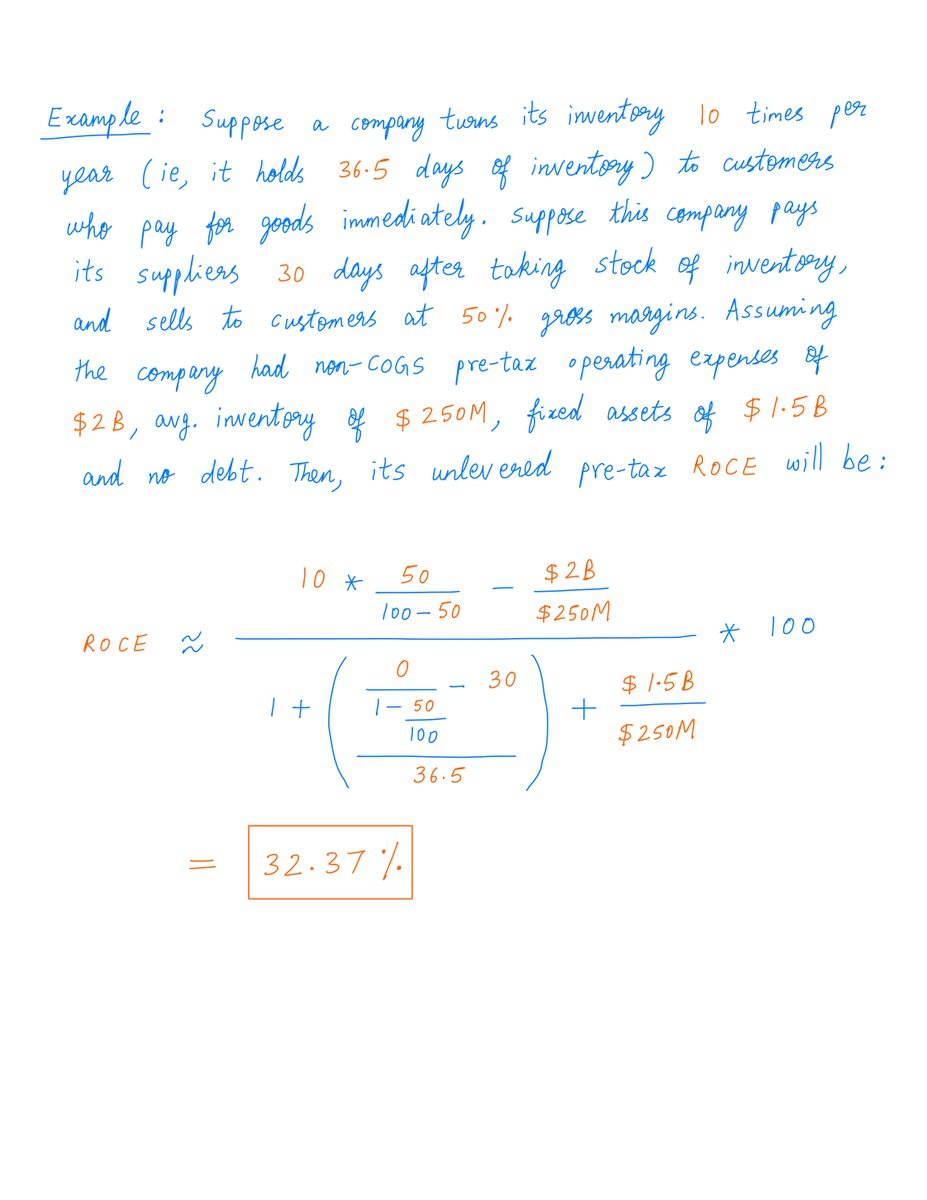 Example : Suppose a company turns its inventory 10 times per
year (ie, it holds 36.5 days of inventory) to customers
who pay for goods immediately. Suppose this company pays
its suppliers 30 days after taking stock of inventory,
and sells to customers at 50% gross margins. Assuming
the company had non-COGS pre-tax operating expenses of
$2B, avg. inventory of $250M, fixed assets of $1.5B
and no debt. Then, its unlevered pre-tax ROCE will be:
10 * 50 / (100 - 50) - $2B / $250M
ROCE ≈ ———— * 100
1 + ((0 / (1 - 50/100) - 30) / 36.5) + $1.5B / $250M
= 32.37%